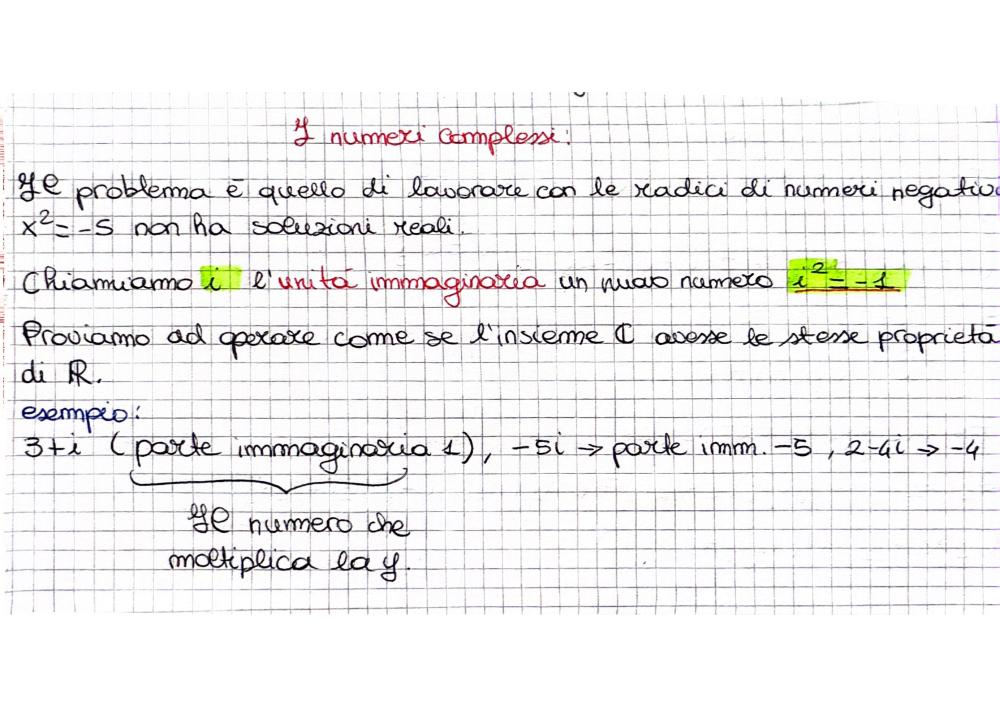 I numeri complessi:
Il problema è quello di lavorare con le radici di numeri negativi
x² = -5 non ha soluzioni reali.
Chiamiamo i l'unità immaginaria un nuovo numero i² = -1
Proviamo ad operare come se l'insieme ℂ avesse le stesse proprietà
di ℝ.
esempio:
3+i (parte immaginaria 1), -5i → parte imm. -5 , 2-4i → -4
Il numero che
moltiplica la y.